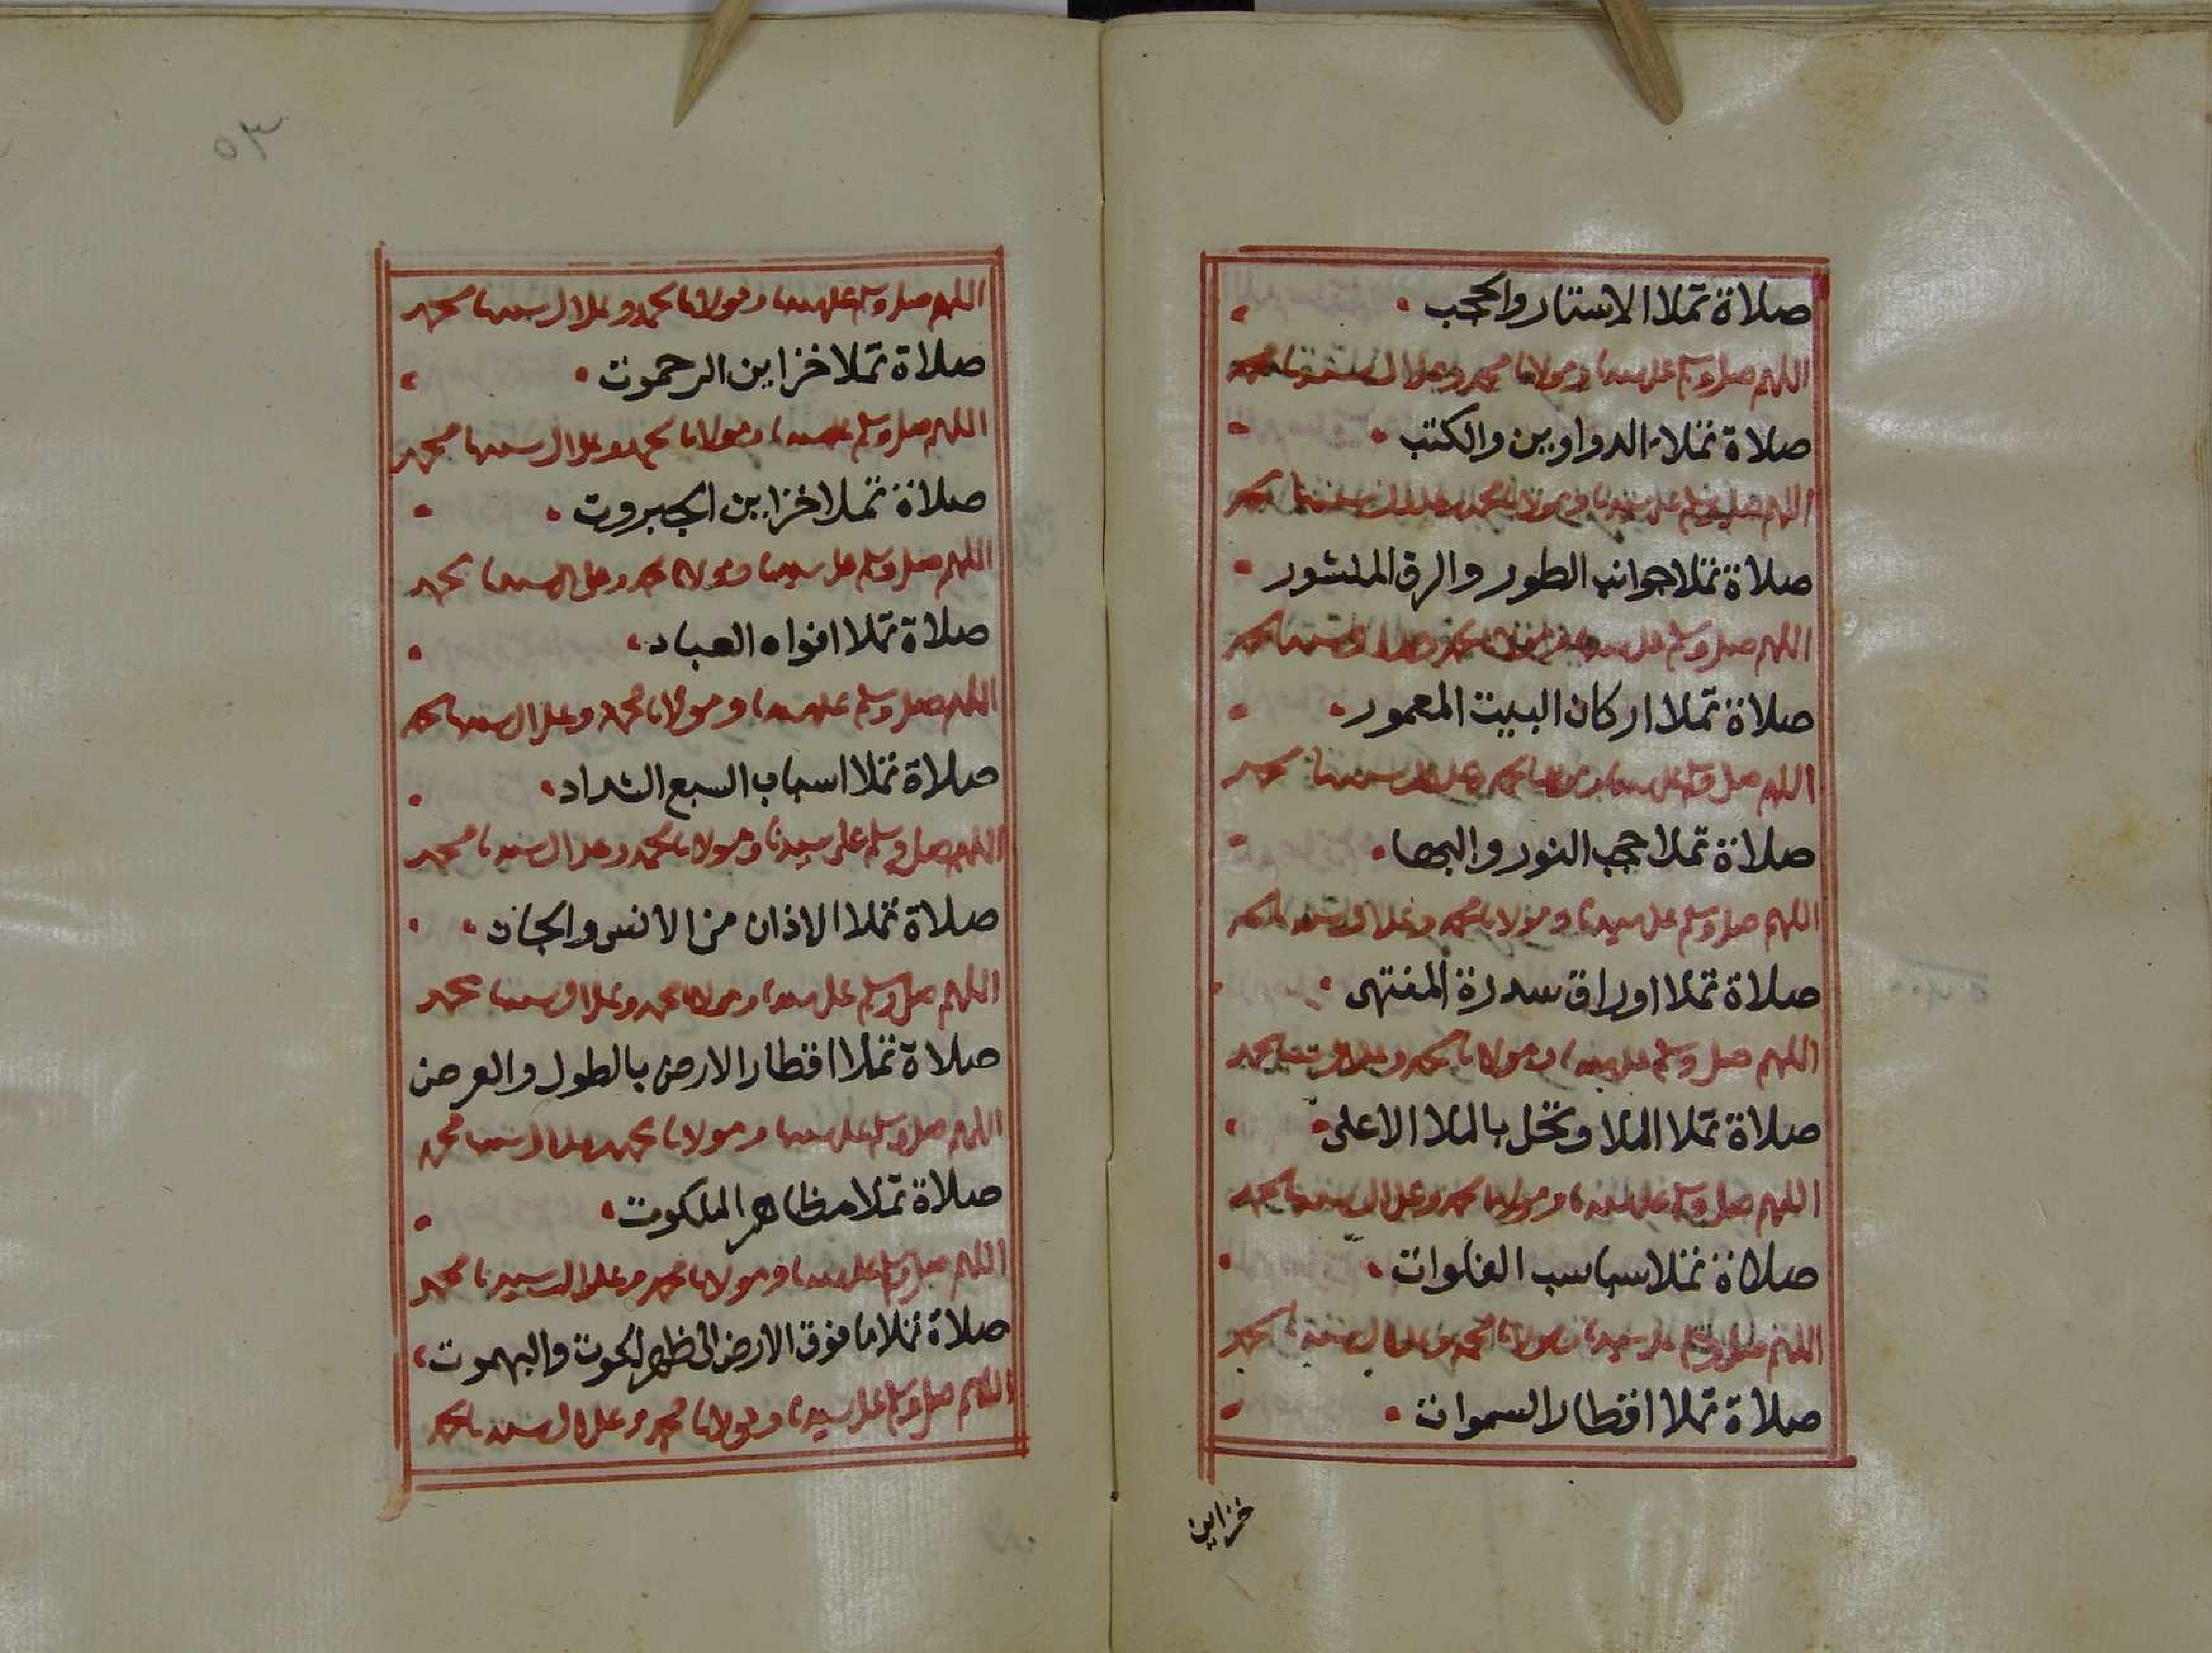 صلاة تملا الاستار والحجب
اللهم صل وسلم على سيدنا ومولانا محمد وعلى ال سيدنا محمد
صلاة تملا الدواوين والكتب
اللهم صل وسلم على سيدنا ومولانا محمد وعلى ال سيدنا محمد
صلاة تملا جوانب الطور والرق المنشور
اللهم صل وسلم على سيدنا ومولانا محمد وعلى ال سيدنا محمد
صلاة تملا اركان البيت المعمور
اللهم صل وسلم على سيدنا ومولانا محمد وعلى ال سيدنا محمد
صلاة تملا حجب النور والبها
اللهم صل وسلم على سيدنا ومولانا محمد وعلى ال سيدنا محمد
صلاة تملا اوراق سدرة المنتهى
اللهم صل وسلم على سيدنا ومولانا محمد وعلى ال سيدنا محمد
صلاة تملا الملا وتحل بالملا الاعلى
اللهم صل وسلم على سيدنا ومولانا محمد وعلى ال سيدنا محمد
صلاة تملا سباسب الفلوات
اللهم صل وسلم على سيدنا ومولانا محمد وعلى ال سيدنا محمد
صلاة تملا اقطار السموات
خزاين
٣٥
اللهم صل وسلم على سيدنا ومولانا محمد وعلى ال سيدنا محمد
صلاة تملا خزاين الرحموت
اللهم صل وسلم على سيدنا ومولانا محمد وعلى ال سيدنا محمد
صلاة تملا خزاين الجبروت
اللهم صل وسلم على سيدنا ومولانا محمد وعلى ال سيدنا محمد
صلاة تملا افواه العباد
اللهم صل وسلم على سيدنا ومولانا محمد وعلى ال سيدنا محمد
صلاة تملا اسباب السبع الشداد
اللهم صل وسلم على سيدنا ومولانا محمد وعلى ال سيدنا محمد
صلاة تملا الاذان من الانس والجان
اللهم صل وسلم على سيدنا ومولانا محمد وعلى ال سيدنا محمد
صلاة تملا اقطار الارض بالطول والعرض
اللهم صل وسلم على سيدنا ومولانا محمد وعلى ال سيدنا محمد
صلاة تملا مظاهر الملكوت
اللهم صل وسلم على سيدنا ومولانا محمد وعلى ال سيدنا محمد
صلاة تملا ما فوق الارض الى ظهر الحوت والبهموت
اللهم صل وسلم على سيدنا ومولانا محمد وعلى ال سيدنا محمد